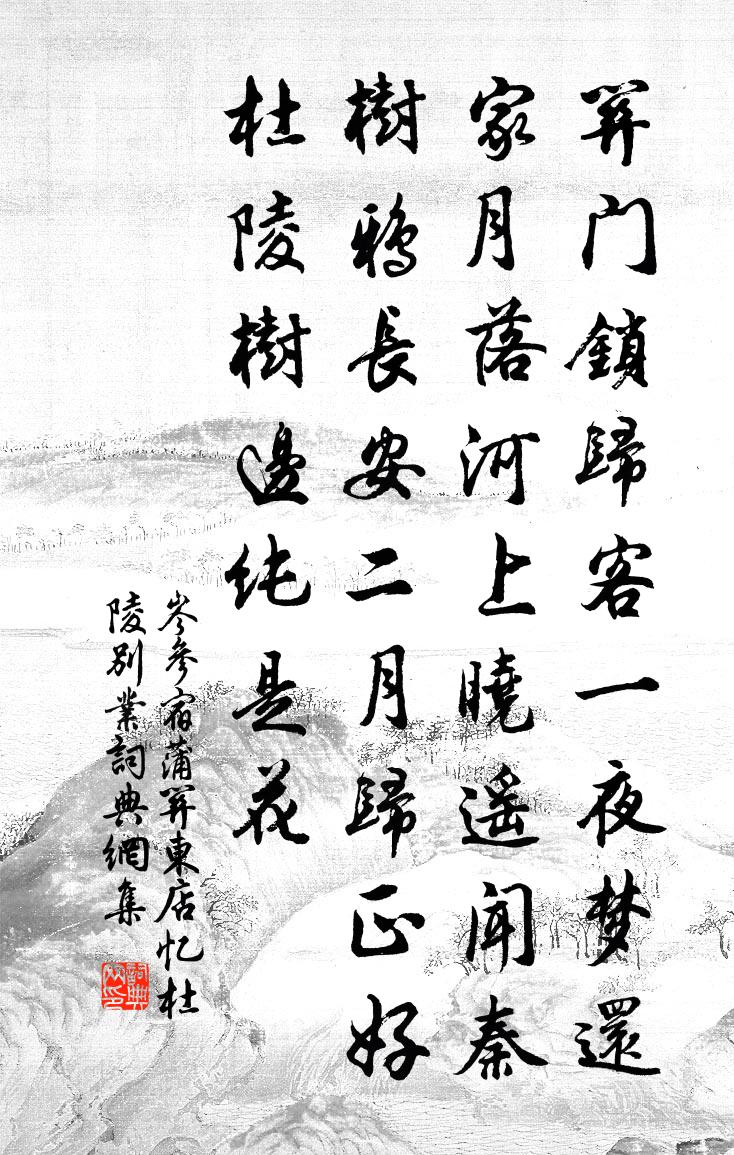 関门鎖歸客一夜梦還
家月落河上曉遥聞秦
樹鴉長安二月歸正好
杜陵樹邊纯是花
岑參宿蒲関東店忆杜
陵别業詞典網集
詞典
网印